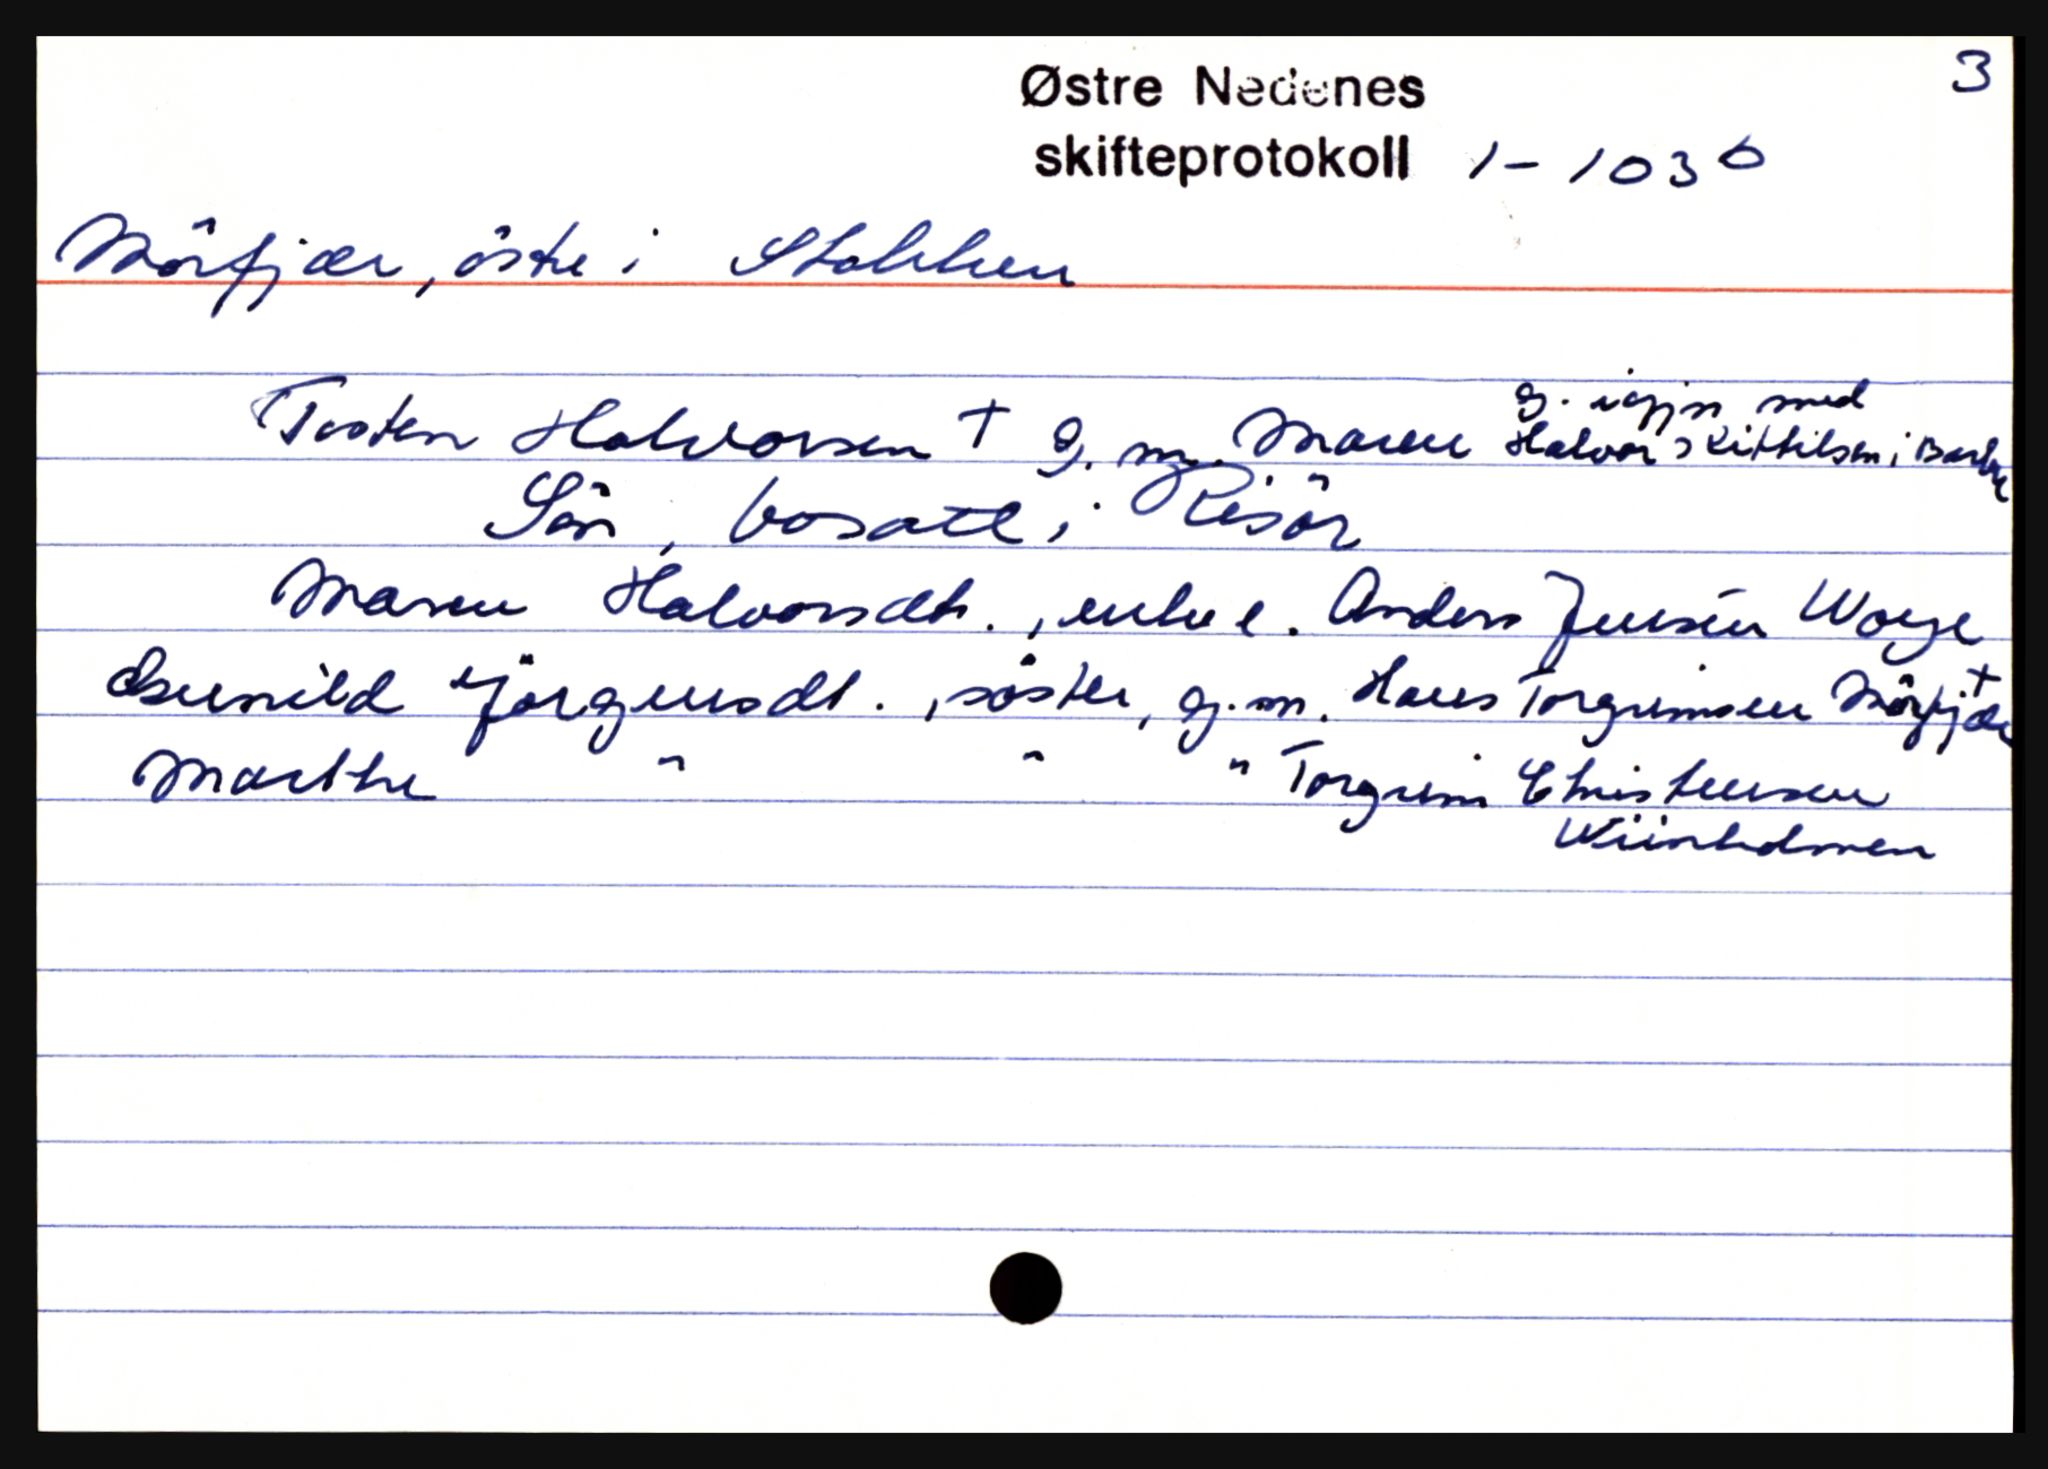 3
Østre Nedenes
skifteprotokoll 1-103 b
Mörfjær, östre i Stokken
Tosten Halvorsen † g. m. Maren g. igjen med
Halvor Kittilsen i Barbu
Sön, bosatt i Risör
Maren Halvorsdt., enke e. Anders Jensen Woxe
Gunild Jörgensdt., söster, gj. m. Hans Torgrimsen Mörfjær †
Marthe " " " Torgrim Christensen
Wiinholmen